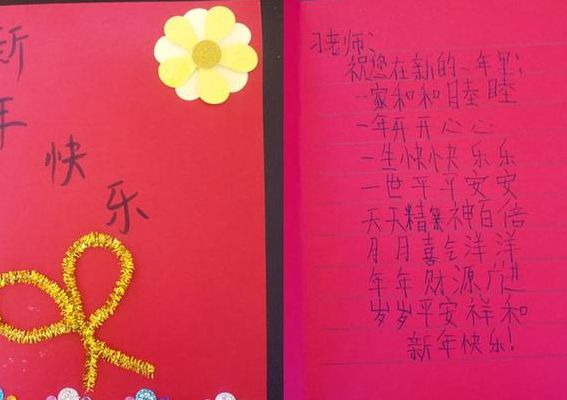 新
年
快
乐
习老师:
祝您在新的一年里:
一家和和睦睦
一年开开心心
一生快快乐乐
一世平平安安
天天精神百倍
月月喜气洋洋
年年财源广进
岁岁平安祥和
新年快乐!